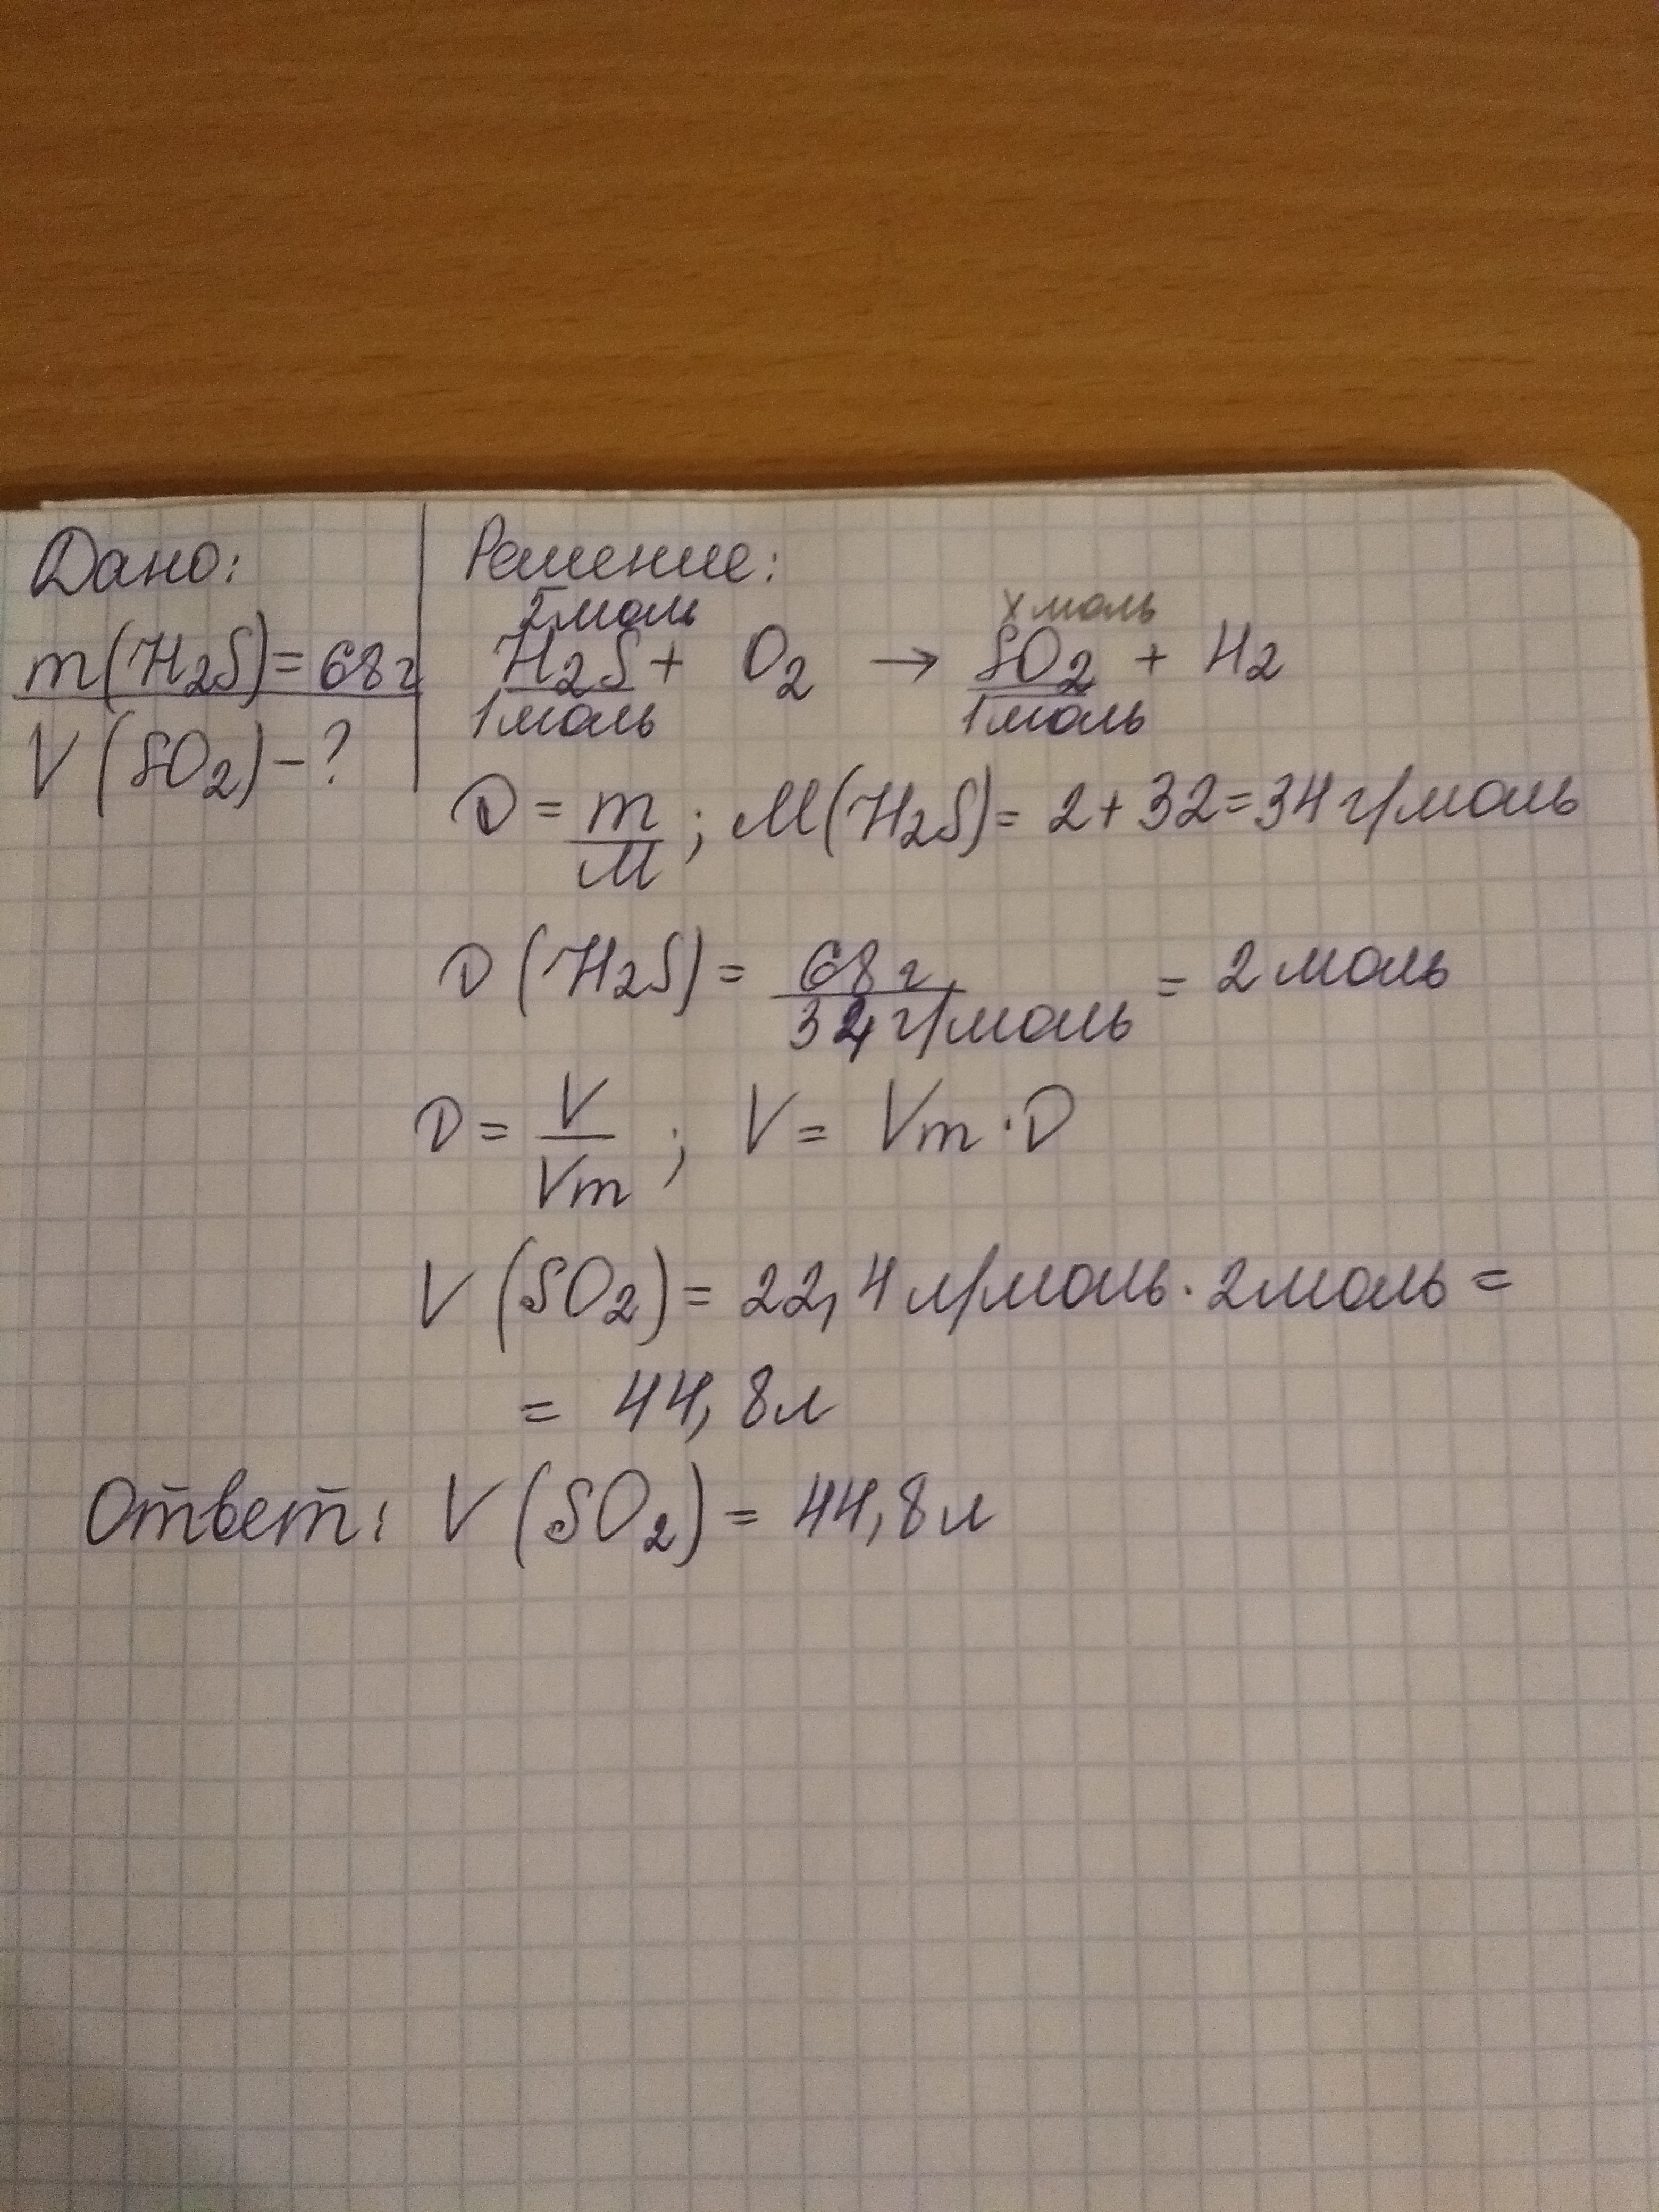 Дано:
m(H2S)=68г
V(SO2)-?
Решение:
2моль х моль
H2S + O2 → SO2 + H2
1моль 1моль
D = m/M; M(H2S)= 2+32=34г/моль
D(H2S)= 68г/34г/моль = 2моль
D = V/Vm; V= Vm·D
V(SO2)= 22,4л/моль·2моль=
= 44,8л
Ответ: V(SO2)= 44,8л